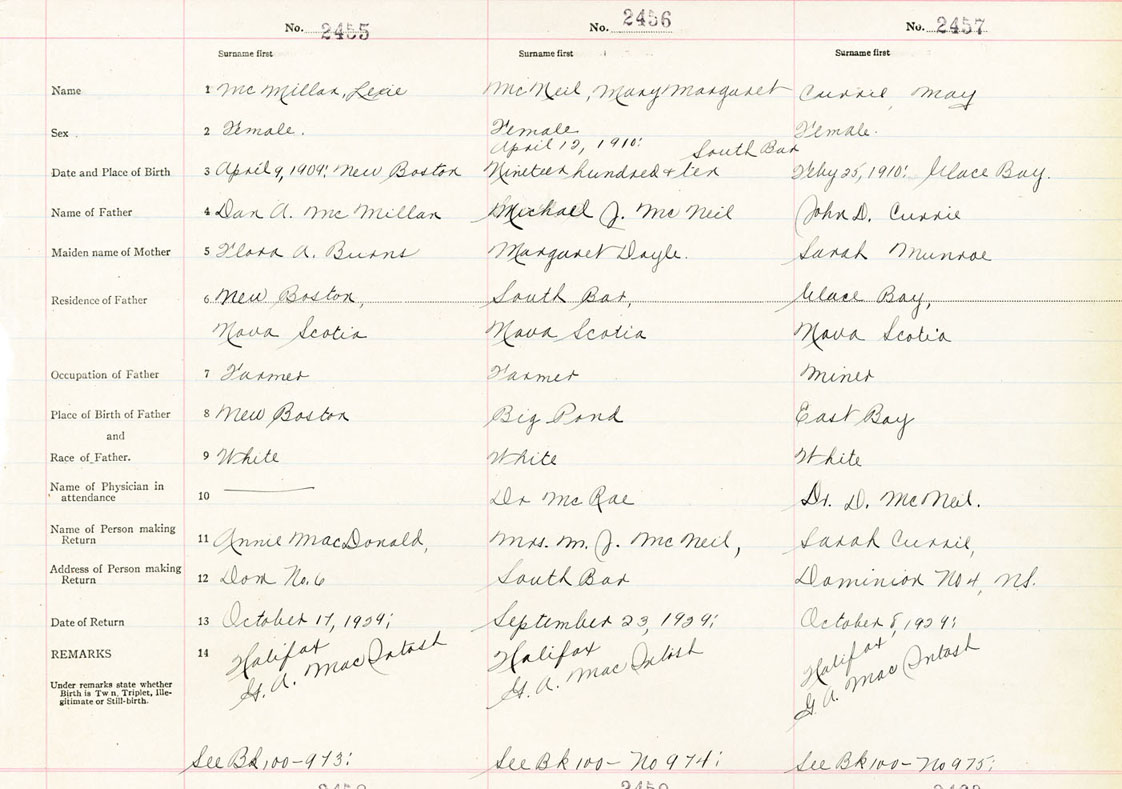 No. 2455 No. 2456 No. 2457
Surname first Surname first Surname first
Name 1 McMillan, Lexie McNeil, Mary Margaret Currie, May
Sex 2 Female. Female Female.
April 12, 1910: South Bar
Date and Place of Birth 3 April 9, 1909: New Boston Nineteen hundred & ten Feby 25, 1910: Glace Bay.
Name of Father 4 Dan A. McMillan Michael J. McNeil John D. Currie
Maiden name of Mother 5 Flora A. Burns Margaret Doyle. Sarah Munroe
Residence of Father 6 New Boston, South Bar, Glace Bay,
Nova Scotia Nova Scotia Nova Scotia
Occupation of Father 7 Farmer Farmer Miner
Place of Birth of Father 8 New Boston Big Pond East Bay
and
Race of Father. 9 White White White
Name of Physician in
attendance 10 Dr McRae Dr. D. McNeil.
Name of Person making
Return 11 Annie MacDonald, Mrs. M. J. McNeil, Sarah Currie,
Address of Person making
Return 12 Dom No. 6 South Bar Dominion No 4, N.S.
Date of Return 13 October 17, 1929: September 23, 1929: October 8, 1929:
REMARKS 14 Halifax Halifax Halifax
G. A. MacIntosh G. A. MacIntosh G. A. MacIntosh
Under remarks state whether
Birth is Tw n, Triplet, Ille-
gitimate or Still-birth.
See Bk 100-973: See Bk 100- No 974: See Bk 100- No 975: